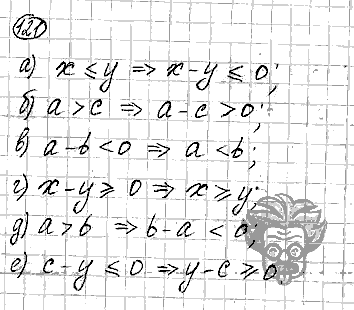 121
а) x ≤ y ⇒ x - y ≤ 0;
б) a > c ⇒ a - c > 0;
в) a - b < 0 ⇒ a < b;
г) x - y ≥ 0 ⇒ x ≥ y;
д) a > b ⇒ b - a < 0;
е) c - y ≤ 0 ⇒ y - c ≥ 0